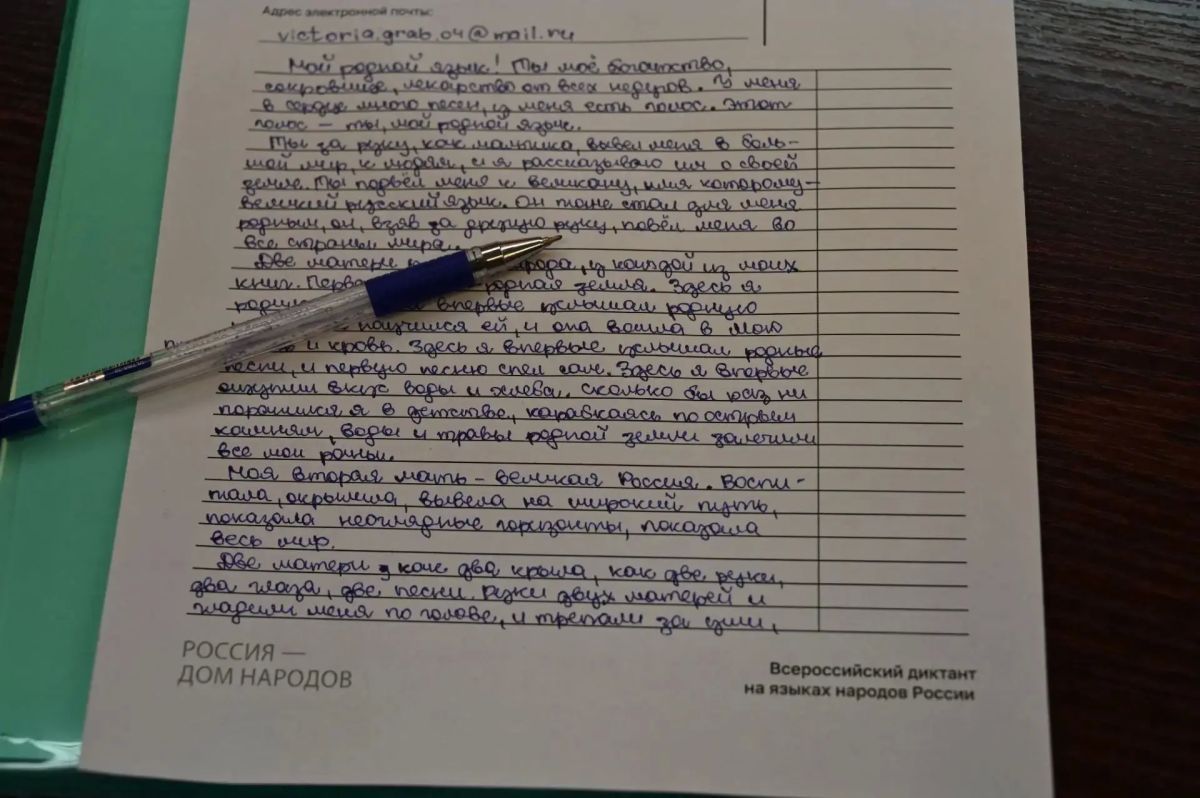 Адрес электронной почты:
victoria.grab.04@mail.ru
Мой родной язык! Ты моё богатство,
сокровище, лекарство от всех недугов. У меня
в сердце много песен, у меня есть голос. Этот
голос – ты, мой родной язык.
Ты за руку, как малыша, вывел меня в боль-
шой мир, к людям, и я рассказываю им о своей
земле. Ты подвёл меня к великому, имя которому –
великий русский язык. Он тоже стал для меня
родным, он, взяв за другую руку, повёл меня во
все страны мира.
Две матери у каждой из моих
книг. родная земля. Здесь я
впервые услышал родную
научился ей, и она вошла в мою
и кровь. Здесь я впервые услышал родные
песни, и первую песню спел сам. Здесь я впервые
ощутил вкус воды и хлеба. Сколько бы раз ни
поранился я в детстве, карабкаясь по острым
камням, воды и травы родной земли залечили
все мои раны.
Моя вторая мать – великая Россия. Воспи-
тала, окрылила, вывела на широкий путь,
показала неоглядные горизонты, показала
весь мир.
Две матери как два крыла, как две руки,
два глаза, две песни. Руки двух матерей и
гладили меня по голове, и трепали за уши,
РОССИЯ —
ДОМ НАРОДОВ
Всероссийский диктант
на языках народов России